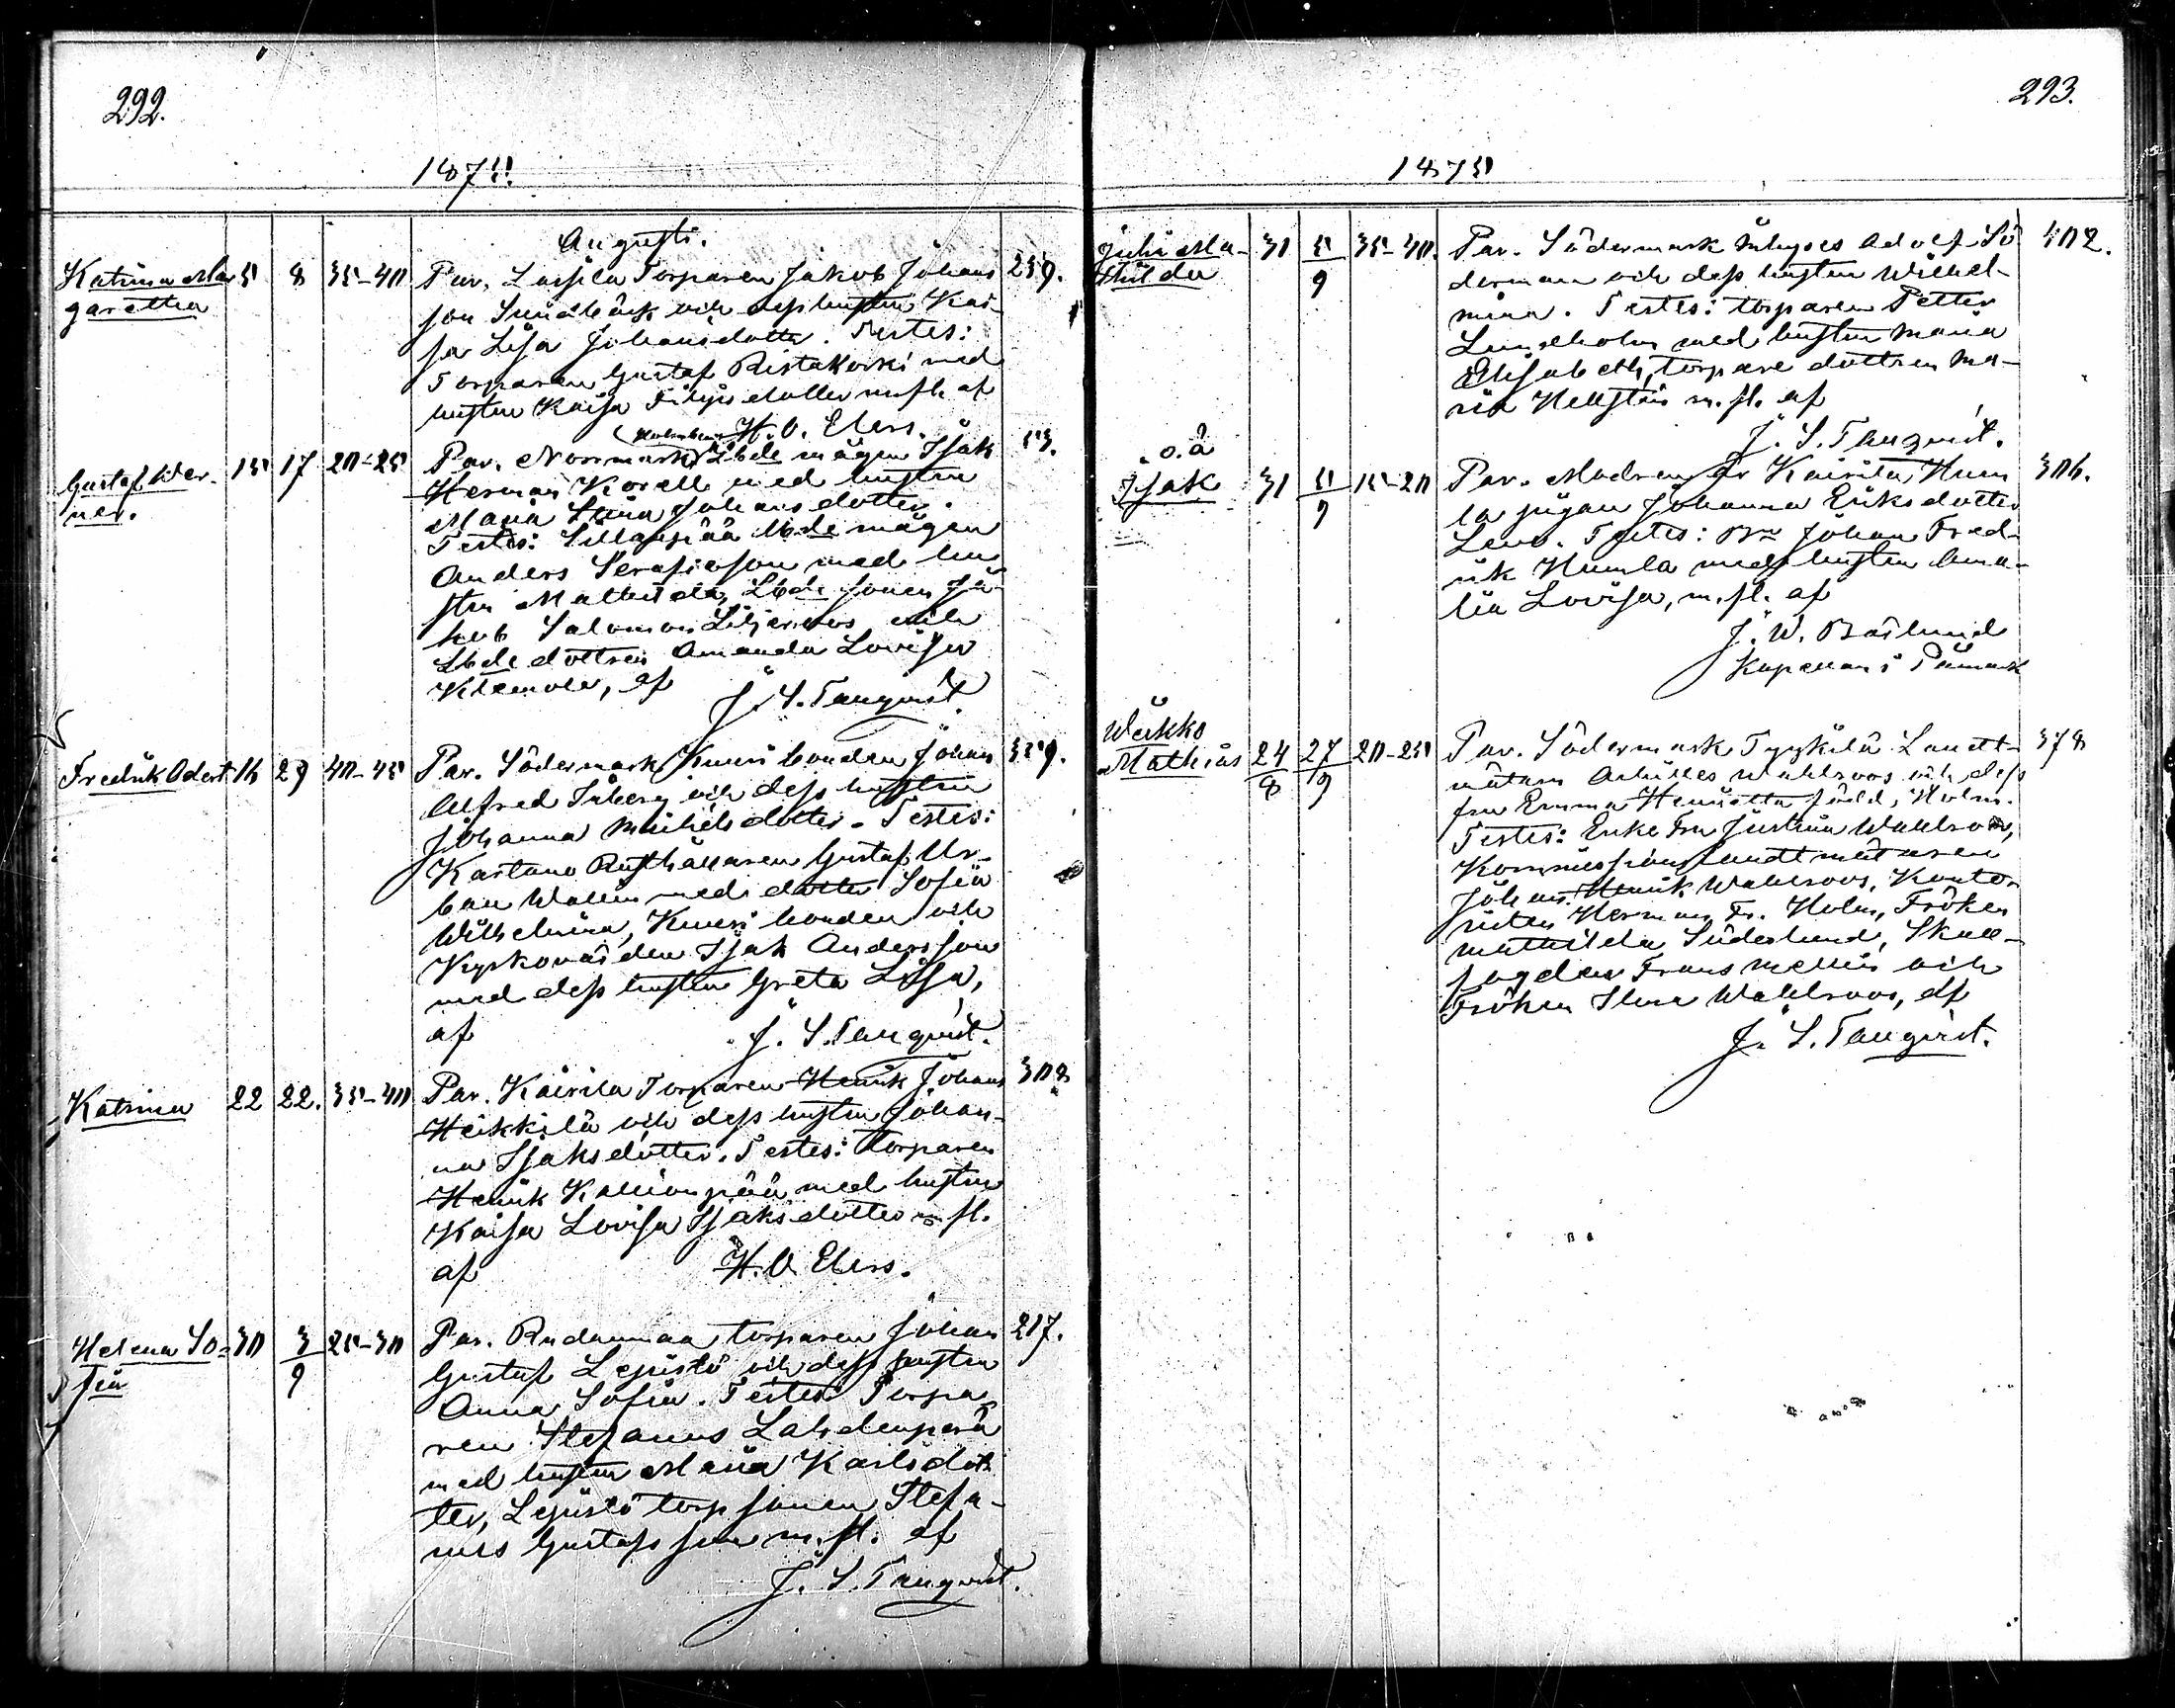 292.
1875.
Augusti.
Katrina Mar
garetha
5 8 35-40
Par. Lassila Torparen Jakob Johans
son Sundbäck och dess hustru Kai
sa Lisa Johansdotter. Testes:
Torparen Gustaf Ristakoski med
hustru Kaisa Filipsdotter m.fl. af
H. O. Elers.
259.
Gustaf Wer-
ner.
15 17 20-25
Par. Norrmark Lbde mågen Isak
Herman Korell med hustru
Maria Johansdotter.
Testes: Sillanpää Lbde mågen
Anders Serafisson med hu
stru Mathilda, Lbde sonen Ja
kob Salomon Liljeroos och
Lbde dottren Amanda Lovisa
Klemola, af
J. S. Tanqvist.
53.
Fredrik Odert
16 29 40-45
Par. Södermark Knuri bonden Johan
Alfred Friberg och dess hustru
Johanna Mickelsdotter. Testes:
Kartano Rusthållaren Gustaf Ur-
ban Wallin med dotter Sofia
Wilhelmina, Knuri bonden och
Kyrkovärden Isak Andersson
med dess hustru Greta Lisa,
af
J. S. Tanqvist.
359.
Katrina
22 22. 35-40
Par. Kairila Torparen Henrik Johans
Heikkilä och dess hustru Johan-
na Isaksdotter. Testes: Torparen
Henrik Kallionpää med hustru
Kaisa Lovisa Isaksdotter m fl.
af
H. O. Elers.
308
Helena So-
fia
30 3/9 25-30
Par. Rudanmaa torparen Johan
Gustaf Lepistö och dess hustru
Anna Sofia. Testes: Torpa
ren Stefanus Lahdenperä
med hustru Maria Karlsdot
ter, Lepistö torp sonen Stefa-
nus Gustafsson m.fl. af
J. S. Tanqvist.
217.
293.
1875
Julia Ma-
thilda
31 5/9 35-40.
Par. Södermark Inhyses Adolf Sö
derman och dess hustru Wilhel-
mina. Testes: torparen Petter
Lundholm med hustru Maria
Elisabeth, torpare dottren Ma-
ria Hellstén m.fl. af
J. S. Tanqvist.
402.
o.ä
Isak
31 5/9 15-20
Par. Modren är Kairila Hum
la pigan Johanna Eriksdotter
Testes: Johan Fred-
rik Humla med hustru Ama-
lia Lovisa, m.fl. af
J. W. Barlund
Kapellan i Påmark
306.
Wäikko
Mathias
24/8 27/9 20-25
Par. Södermark Tyykilä Landt-
mätaren Achilles Wahlroos och dess
fru Emma Henrietta född, Holm.
Testes: Enke Fru Justina Wahlroos,
Kommissions landtmätaren
Johan Henrik Wahlroos, Konto-
risten Herman Fr. Holm, Fröken
Mathilda Söderlund, Skall-
fogden Frans Mellin och
Fröken Ilma Wahlroos, af
J. S. Tanqvist.
378